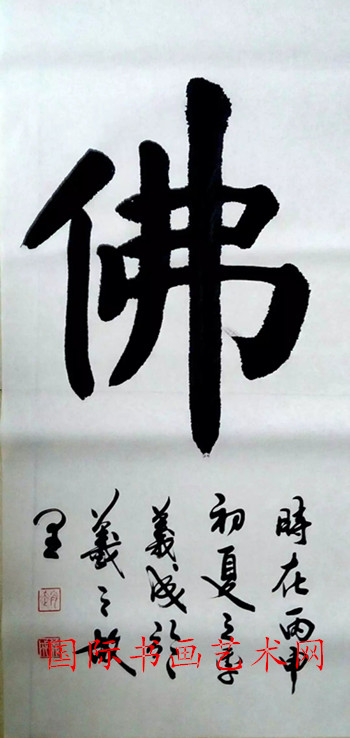 佛
時在丙申
初夏之季
義成於
羲之故
里
国际书画艺术网